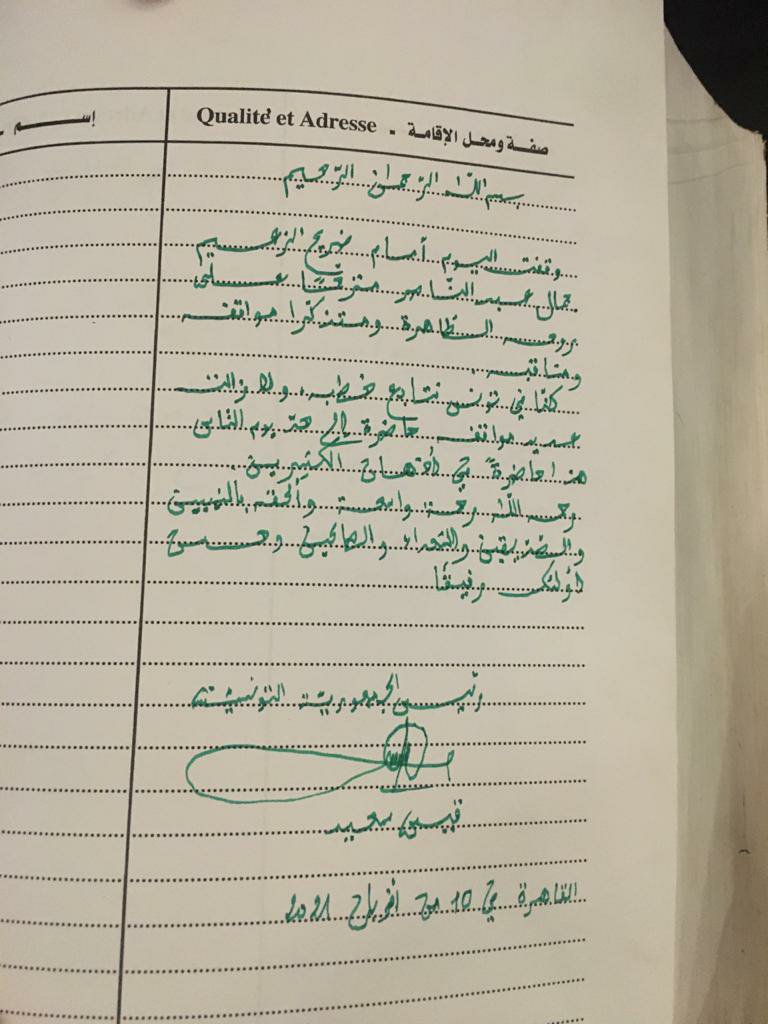 إسم -
Qualité et Adresse - صفة ومحل الإقامة
بسم اللّه الرّحمان الرّحيم
وقفت اليوم أمام ضريح الزعيم
جمال عبد النّاصر مترحّمًا على
روحه الطّاهرة ومتذكّرا مواقفه
ومناقبه.
كنّا في تونس نتابع خطبه، ولا زالت
عديد مواقفه حاضرة إلى حدّ يوم النّاس
هذا حاضرة في أذهان الكثيرين.
رحمه اللّه رحمة واسعة وألحقه بالنبيين
والصّدّيقين والشّهداء والصالحين وحسن
أولئك رفيقًا
رئيس الجمهوريّة التّونسيّة
قيس سعيد
القاهرة في 10 من أفريل 2021